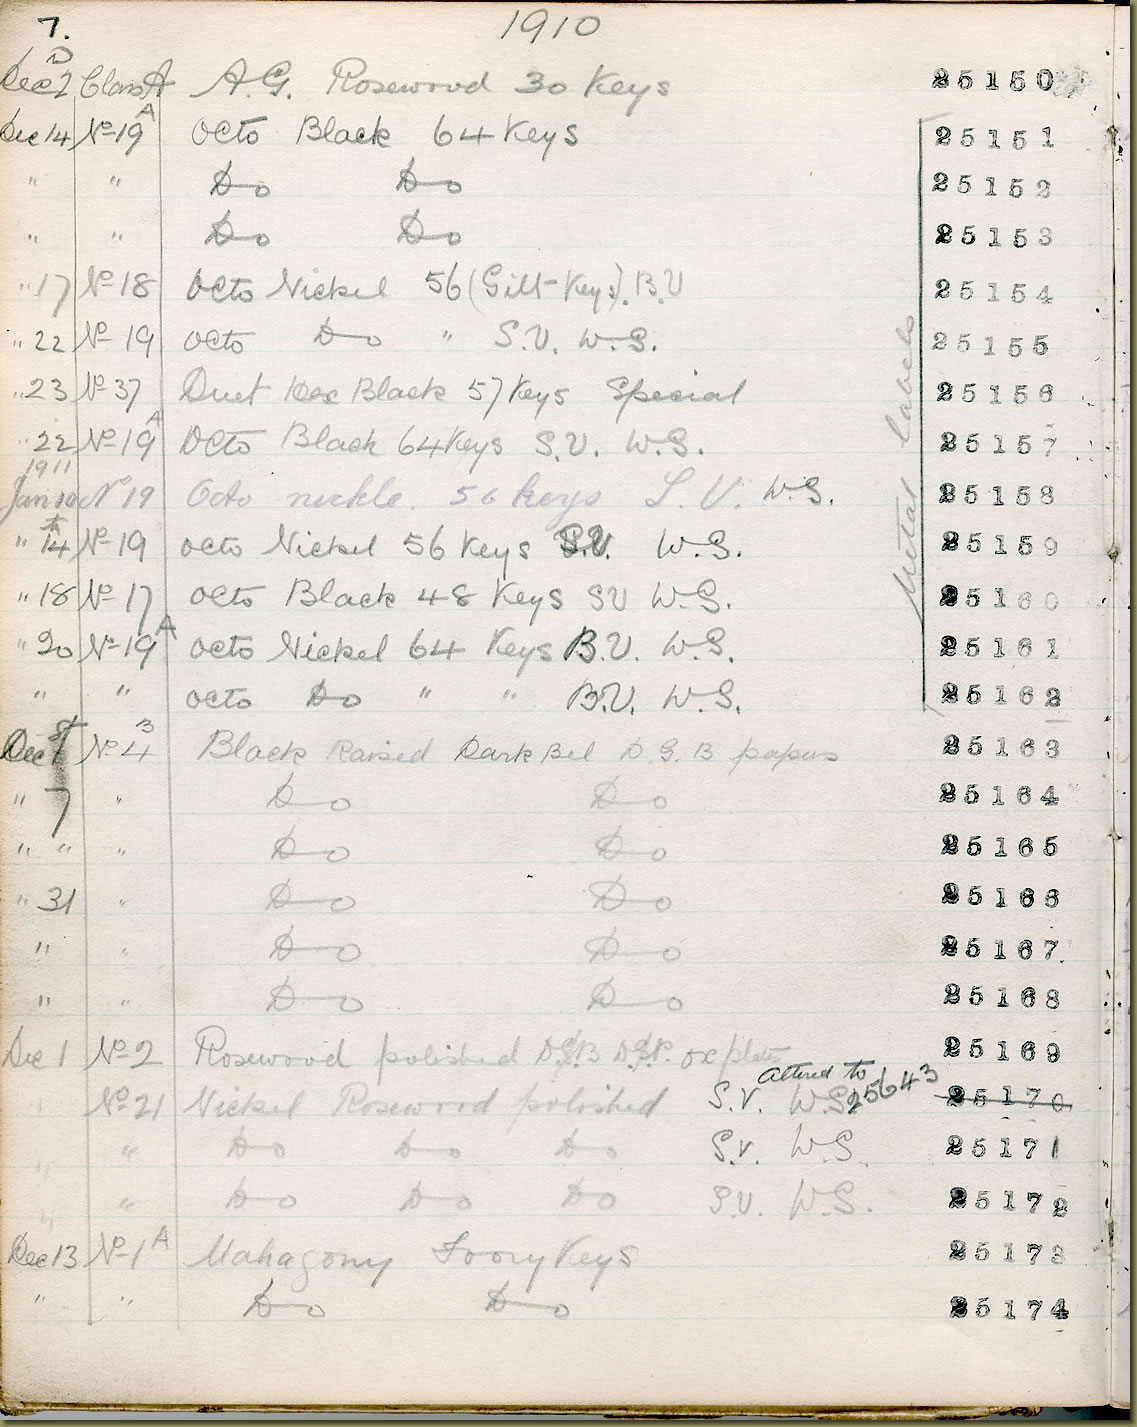 7. 1910
Dec 2 Class A A.G. Rosewood 30 Keys 25150
Dec 14 No 19A Octo Black 64 Keys 25151
" " Do Do 25152
" " Do Do 25153
" 17 No 18 Octo Nickel 56 (Gilt Keys). B.V 25154
" 22 No 19 Octo Do " S.V. W.S. 25155
" 23 No 37 Duet Hex Black 57 Keys Special 25156
" 22 No 19A Octo Black 64 Keys S.V. W.S. 25157
1911
Jan 10 No 19 Octo nickle 56 keys S.V. W.S. 25158
" 14 No 19 Octo Nickel 56 Keys S.V. W.S. 25159
" 18 No 17 Octo Black 48 Keys SV W.S. 25160
" 20 No 19A Octo Nickel 64 Keys B.V. W.S. 25161
" " Octo Do " " B.V. W.S. 25162
Metal labels
Dec 1st No 4B Black Raised Dark Bel D.G.B papers 25163
" 7 " Do Do 25164
" " " Do Do 25165
" 31 " Do Do 25166
" " Do Do 25167
" " Do Do 25168
Dec 1 No 2 Rosewood polished D.G.B ox plates 25169
altered to
No 21 Nickel Rosewood polished S.V. W.S. 25643 25170
" " Do Do Do S.V. W.S. 25171
" " Do Do Do S.V. W.S. 25172
Dec 13 No 1A Mahagony Ivory Keys 25173
" " Do Do 25174